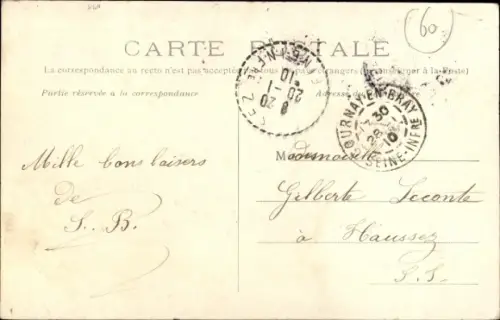 60
CARTE POSTALE
La correspondance au recto n'est pas acceptée par tous les pays étrangers (se renseigner à la Poste)
Partie réservée à la correspondance
GOURNAY-EN-BRAY
30
28
10
SEINE-INFRE
10
20-1
8 20
Mille bons baisers
de
S. B.
Mademoiselle
Gilberte Leconte
à Haussez
S. I.